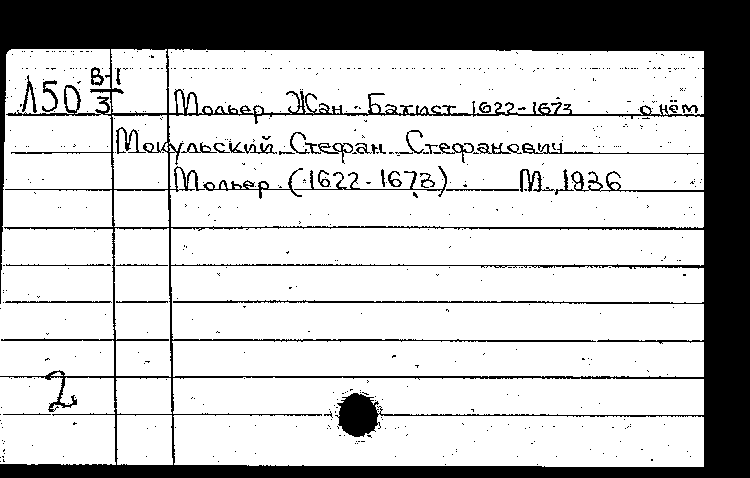 Л50 В-1/3 Мольер, Жан-Батист 1622-1673 о нём
Мокульский, Стефан Стефанович
Мольер (1622-1673). М., 1936
2.